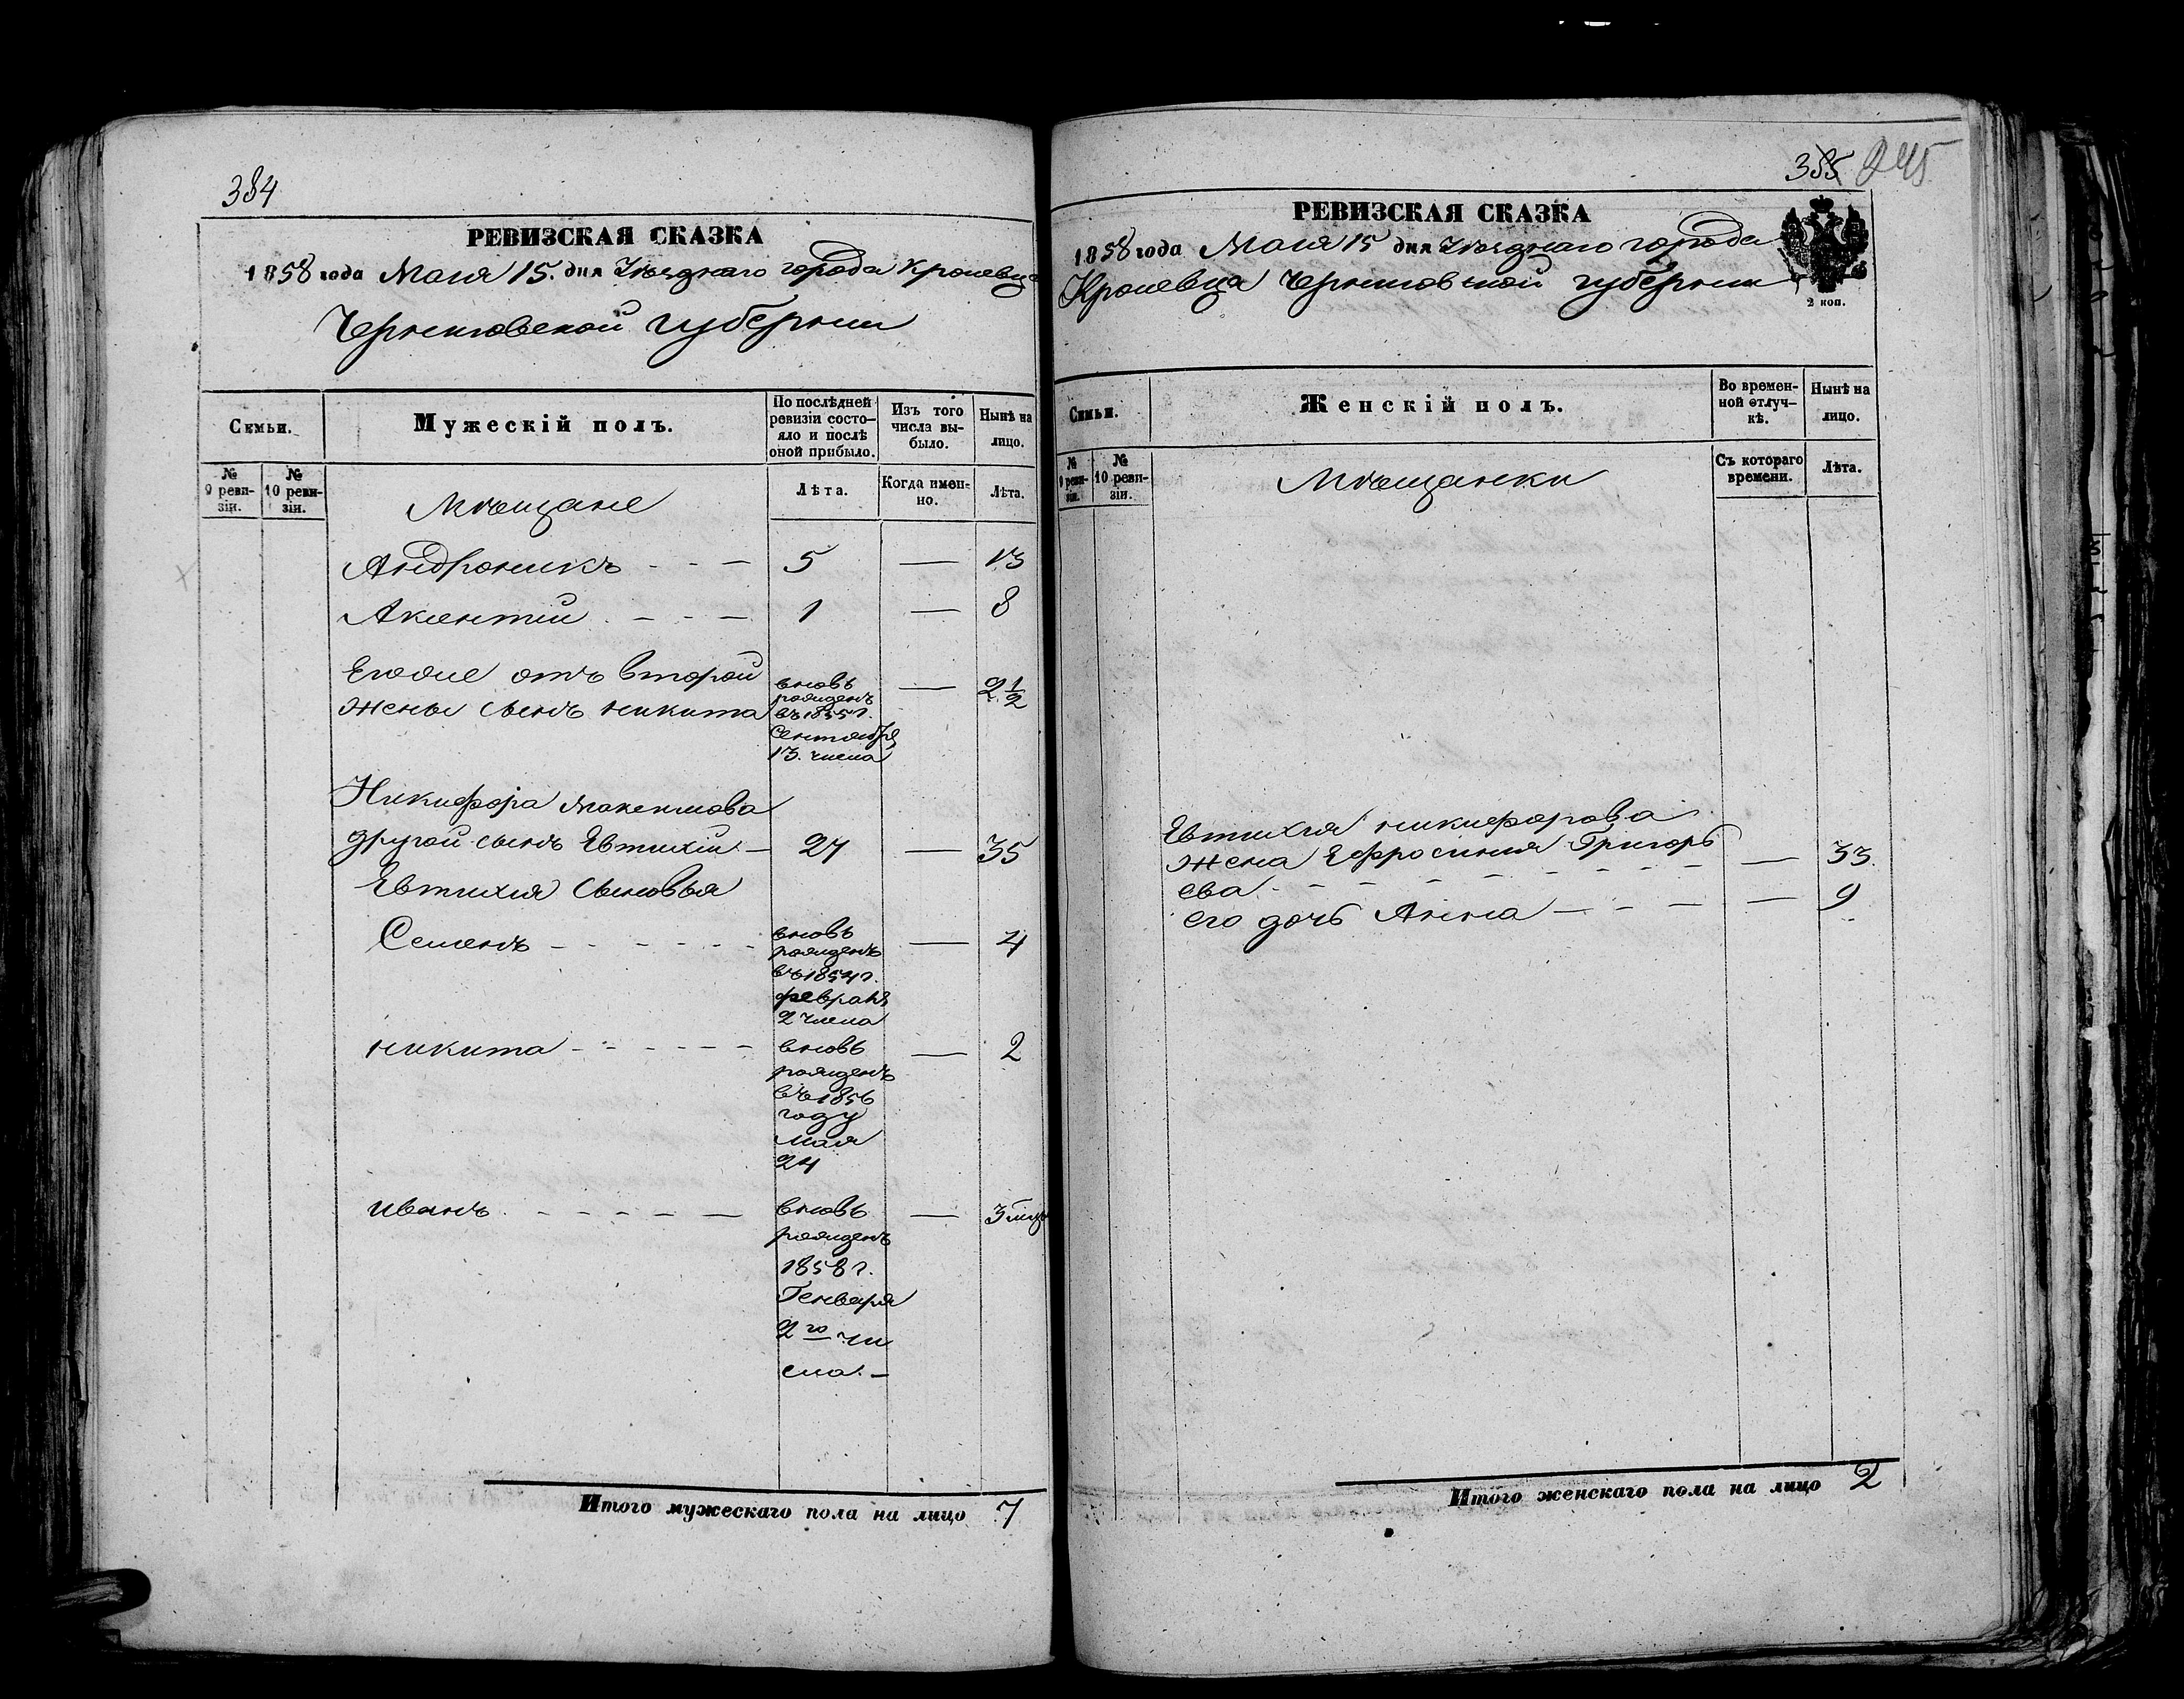 384
РЕВИЗСКАЯ СКАЗКА
1858 года Маия 15. дня Уѣзднаго города Кролевца
Черниговской губернии
Семьи.
Мужескій полъ.
По послѣдней ревизіи состо-
яло и послѣ
оной прибыло.
Изъ того
числа вы-
было.
Нынѣ на
лицо.
№
9 реви-
зіи.
№
10 реви-
зіи.
Лѣта.
Когда имен-
но.
Лѣта.
Мѣщане
Андроникъ - - - 5 — 13
Акентий - - - 1 — 8
Егоже отъ второй
жены сынъ никита
вновь
рожденъ
въ 1855 г.
Сентября
13. числа
— 2 1/2
Никифора Максимова
другой сынъ Евтихий — 27 — 35
Евтихия сыновья
Семенъ - - - - - -
вновь
рожденъ
въ 1854 г.
февраля
2 числа
— 4
никита - - - - - -
вновь
рожденъ
въ 1856
году
мая
24
— 2
иванъ - - - - - —
вновь
рожденъ
1858 г.
Генваря
2го чи
сла. —
— 3 мца
Итого мужескаго пола на лицо 7
385 245
РЕВИЗСКАЯ СКАЗКА
1858 года Маия 15 дня Уѣзднаго города
Кролевца Черниговской губернии
2 коп.
Семьи.
Женскій полъ.
Во времен-
ной отлуч-
кѣ.
Нынѣ на
лицо.
№
9 реви-
зіи.
№
10 реви-
зіи.
Съ котораго
времени.
Лѣта.
Мѣщанки
Евтихия никифорова
жена Ефросиния Григорь
ева - - - - - - — 33.
его дочь Анна — - - — 9
Итого женскаго пола на лицо 2